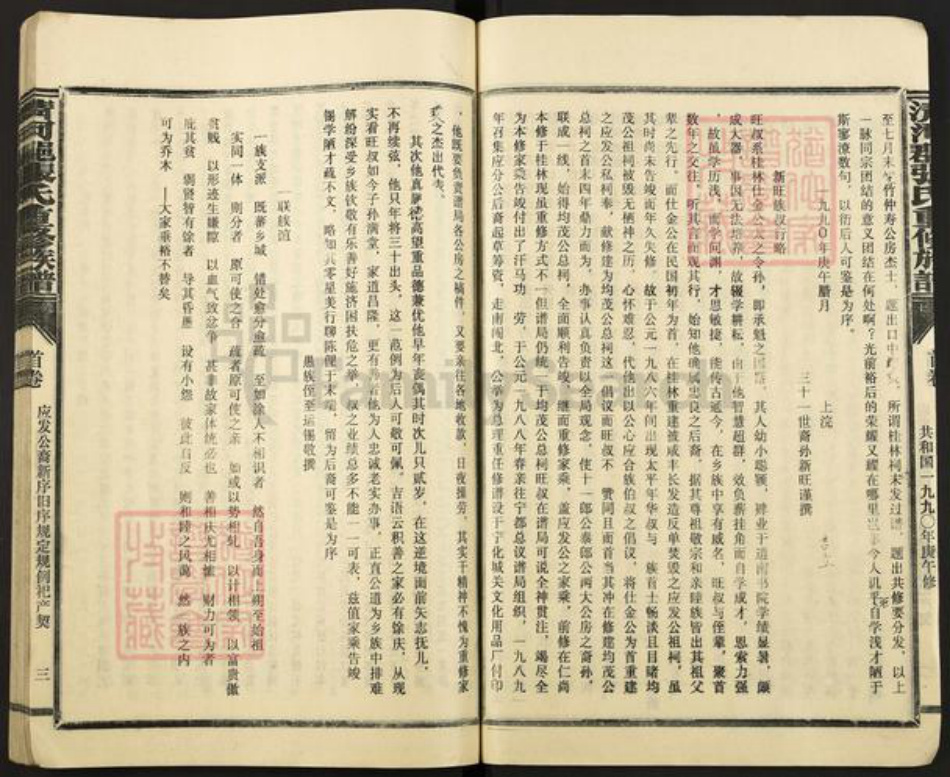 清河郡张氏重修族谱
首卷
共和国一九九〇年庚午修
至七月末
竹仲寿公房杰士
题出口中
所谓桂林祠未发过谱
题出共修要分发
以上
一脉同宗团结的意义团结在何处啊？光前裕后的荣耀又耀在哪里
今人讥乎自学浅才陋于
斯寥潦数句，以衍后人可鉴是为序。
一九九〇年庚午腊月
上浣，
三十一世裔孙新旺谨撰
新旺族叔行略
旺叔系桂林仕金公太之令孙，即承魁之
其人幼小聪颖，肄业于道南书院学绩显著，颇
成大器，事因无法培养，故辍学耕耘，由于他智慧超群，效负薪挂角而自学成才，恩索力强
，故虽学历浅，而学问渊，才思敏捷，能传古通今，在乡族中享有威名，旺叔与侄辈，聚首
数年之交往，听其言而观其行，始知他确属忠良之后裔，据其尊祖敬宗和亲睦族皆出其祖父
辈之先行，而仕金公在民国初年为首，在桂林重建被咸丰长发造反单焚毁之应发公祖祠，虽
其时尚未告竣而年久失修，故于公元一九八六年间出现太平年华叔与
族首士畅谈且目睹均
茂公祖祠被毁无栖神之历，心怀难忍，代他出以公心应合族伯叔之倡议，将仕金公为首重建
之应发公私祠奉，献修建为均茂公总祠这一倡议而旺叔不
赞同且而首当其冲在修建均茂公
总祠之首末四年鼎力而为，办事认真负责以全局观念，使十一郎公泰郎公两大公房之裔孙，
联成一线，始得均茂公总祠，全面顺利告竣，继而重修家乘，盖应发公之家乘，前修在仁尚
本修于桂林现虽重修方式不一但谱局仍统一于均茂公总祠旺叔在谱局可说全神贯注，竭尽全
为本修家乘告竣付出了汗马功
劳，于公元一九八八年春亲往宁都总议谱局组织，一九八九
年召集应分公后裔起草等资，走南闯北，公举为总理重任设修谱设于宁化城关文化用品厂付印
，他既要负责谱局各公房之稿件，又要亲往各地收款，日夜操劳，其实干精神不愧为重修家
之杰出代表。
其次他真
高望重品德兼优他早年丧偶其时次儿只贰岁，在这逆境面前矢志抚儿，
不再续弦，他只年将三十出头，这一范例为后人可敬可佩，吉语云积善之家必有馀庆，从现
实看旺叔如今子孙满堂，家道昌隆，更有
他为人忠诚老实办事，正直公道为乡族中排难
解纷深受乡族钦敬有乐善好施济困扶危之举，叔之业绩总多不能一一可表，兹值家乘告竣
锡学陋才疏不文，略知其零星美行聊陈便于末端，留为后裔可鉴是为序
愚族侄至运锡敬撰
一联族谊
一族支派
既蕃乡域
错处愈分愈疏
至如涂人不相识者
然自吾身而上朔至始祖
实同一体
则分者
原可使之合
疏者原可使之亲
如或以势相轧
以计相倾
以富贵傲
贫贱
以形迹生嫌隙
以血气致忿争
甚非故家体统必也
善相庆尤相恤
财力可为者
庇其贫
弱贤智有馀者
导其昏愚
设有小怨
彼此自反
则和睦之风蔼
然一族之内
可为乔木
——大家垂裕不替矣
清河郡张氏重修族谱
首卷
应发公裔新序旧序规定规例祀产契
三